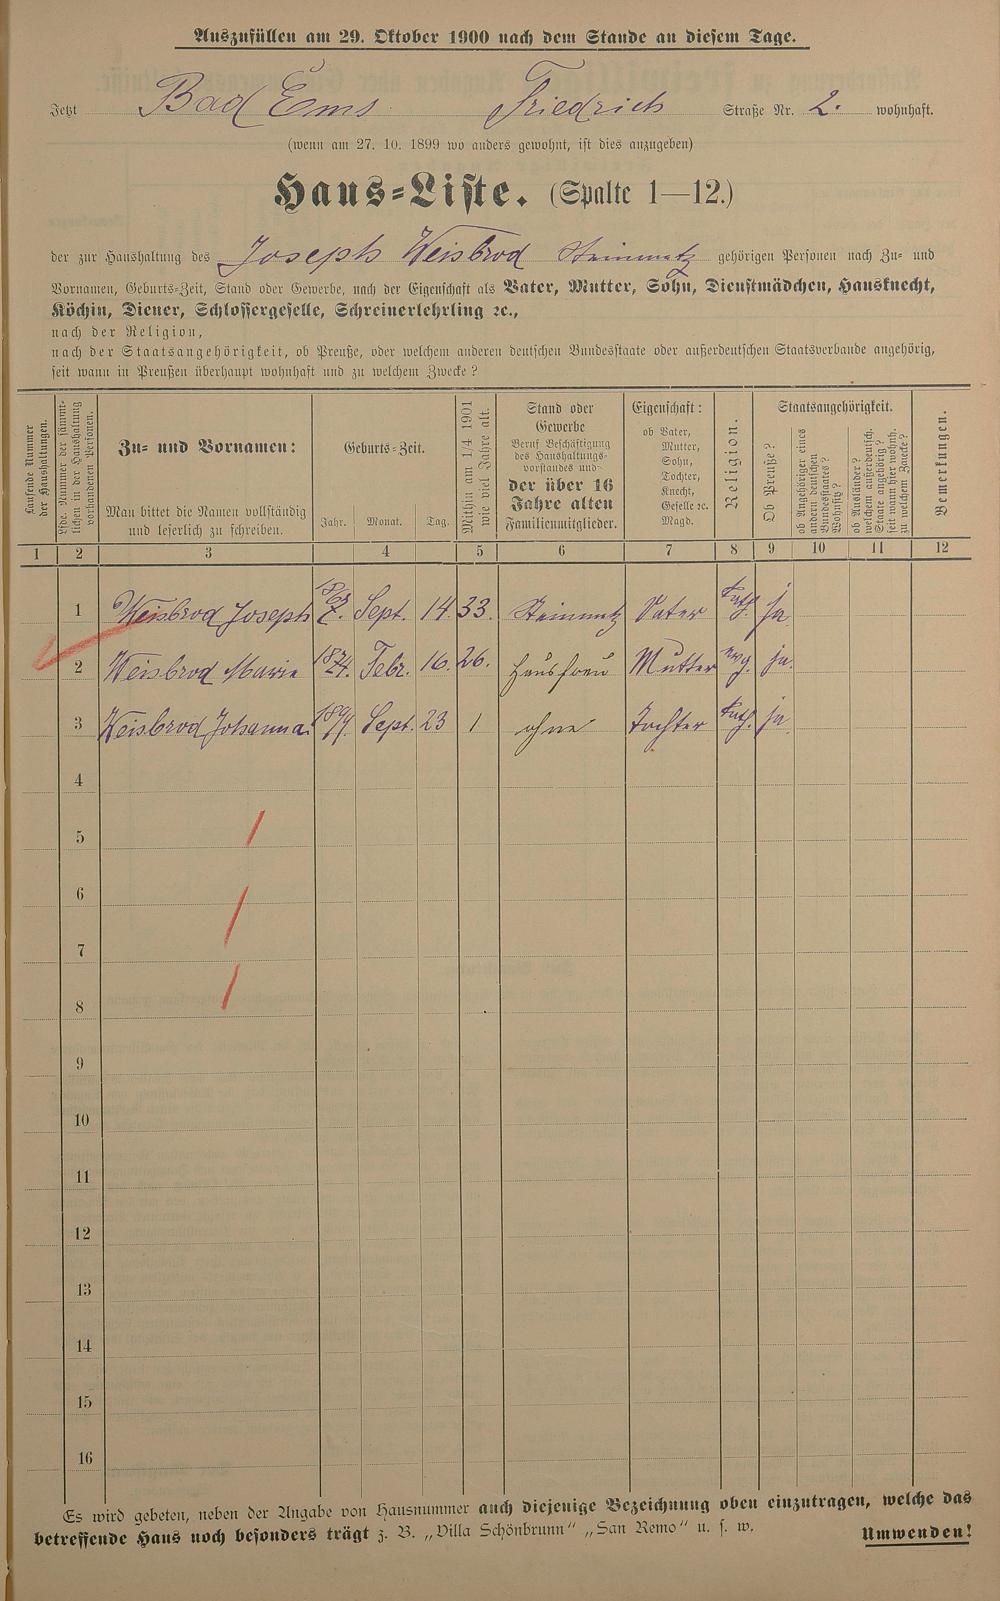 Auszufüllen am 29. Oktober 1900 nach dem Stande an diesem Tage.
Jetzt Bad Ems Friedrich Straße Nr. 2. wohnhaft.
(wenn am 27. 10. 1899 wo anders gewohnt, ist dies anzugeben)
Haus-Liste. (Spalte 1—12.)
der zur Haushaltung des Joseph Weisbrod Steinmetz gehörigen Personen nach Zu- und
Vornamen, Geburts-Zeit, Stand oder Gewerbe, nach der Eigenschaft als Vater, Mutter, Sohn, Dienstmädchen, Hausknecht,
Köchin, Diener, Schlossergeselle, Schreinerlehrling ꝛc.,
nach der Religion,
nach der Staatsangehörigkeit, ob Preuße, oder welchem anderen deutschen Bundesstaate oder außerdeutschen Staatsverbande angehörig,
seit wann in Preußen überhaupt wohnhaft und zu welchem Zwecke?
Laufende Nummer
der Haushaltungen.
Lfde. Nummer der sämmt-
lichen in der Haushaltung
vorhandenen Personen.
Zu- und Vornamen:
Man bittet die Namen vollständig
und leserlich zu schreiben.
Geburts-Zeit.
Jahr. Monat. Tag.
Mithin am 1/4 1901
wie viel Jahre alt.
Stand oder
Gewerbe
Beruf Beschäftigung
des Haushaltungs-
vorstandes und
der über 16
Jahre alten
Familienmitglieder.
Eigenschaft:
ob Vater,
Mutter,
Sohn,
Tochter,
Knecht,
Geselle ꝛc.
Magd.
Religion.
Staatsangehörigkeit.
Ob Preuße?
ob Angehöriger eines
andern deutschen
Bundesstaates?
Wohnsitz?
ob Ausländer?
welchem außerdeutsch.
Staate angehörig?
seit wann hier wohnh.
zu welchem Zwecke?
Bemerkungen.
1 2 3 4 5 6 7 8 9 10 11 12
1 Weisbrod Joseph 1867. Sept. 14. 33. Steinmetz Vater kath. ja.
2 Weisbrod Marie 1874. Febr. 16. 26. Hausfrau Mutter evg. ja.
3 Weisbrod Johanna. 1899. Sept. 23 1 ohne Tochter kath. ja.
4
5
6
7
8
9
10
11
12
13
14
15
16
Es wird gebeten, neben der Angabe von Hausnummer auch diejenige Bezeichnung oben einzutragen, welche das
betreffende Haus noch besonders trägt z. B. „Villa Schönbrunn" „San Remo" u. s. w. Umwenden!